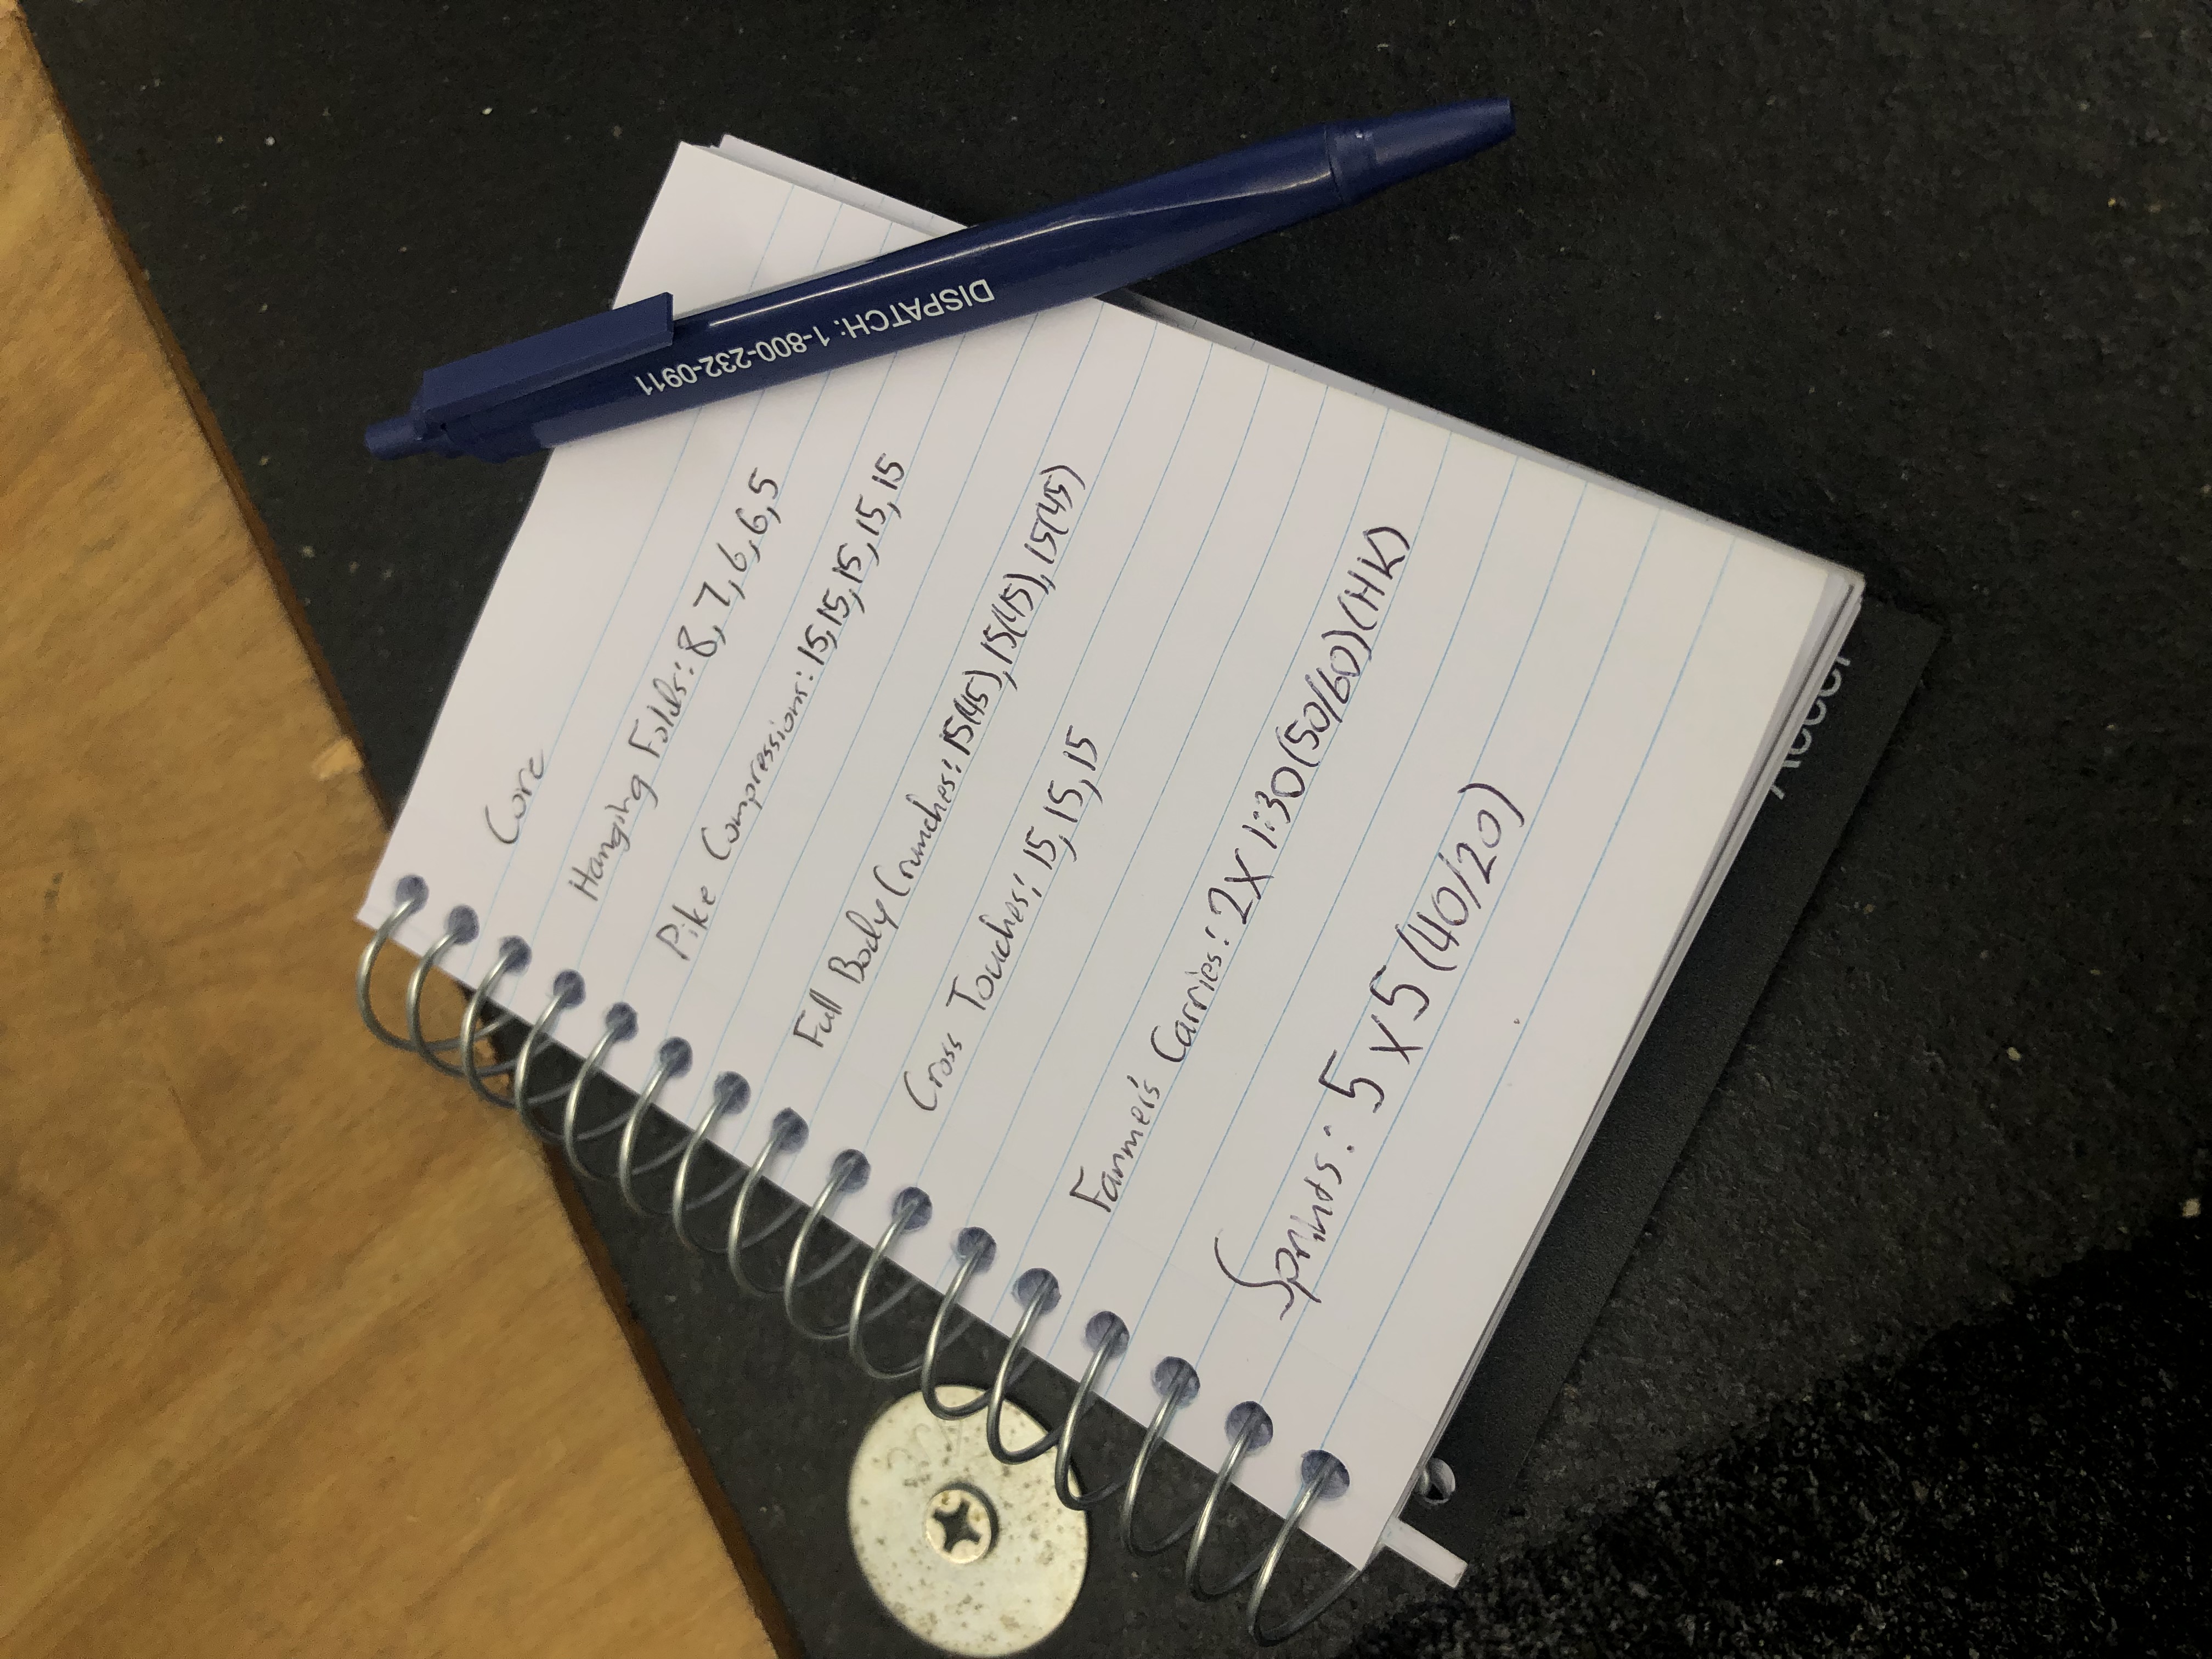 Core
Hanging Folds: 8, 7, 6, 6, 5
Pike Compressions: 15, 15, 15, 15, 15
Full Body Crunches: 15(45), 15(45), 15(45)
Cross Touches: 15, 15, 15
Farmer's Carries: 2X 1:30 (50/60) (HK)
Sprints: 5 x 5 (40/20)
DISPATCH: 1-800-232-0911